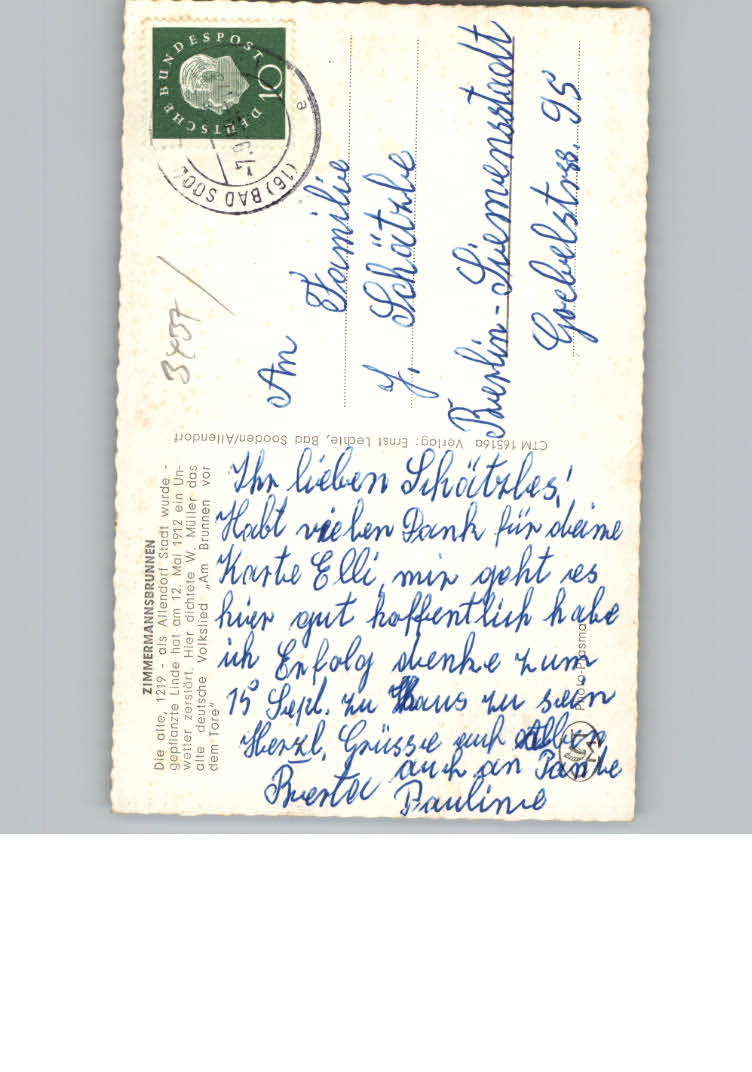 ZIMMERMANNSBRUNNEN
Die alte, 1219 - als Allendorf Stadt wurde -
gepflanzte Linde hat am 12. Mai 1912 ein Un-
wetter zerstört. Hier dichtete W. Müller das
alte deutsche Volkslied „Am Brunnen vor
dem Tore"
Ihr lieben Schätzles!
Habt vielen Dank für deine
Karte Elli, mir geht es
hier gut hoffentlich habe
ich Erfolg denke zum
15 Sept. zu Haus zu sein
Herzl. Grüsse euch allen
auch an Tante
Pauline
Berta
CTM 16516a Verlag: Ernst Lechte, Bad Sooden/Allendorf
Photo-Plasma
DEUTSCHE BUNDESPOST
10
(16) BAD SOOD
e
3437/
An
Familie
Schätzle
Berlin-Siemensstadt
Goebelstrss. 95